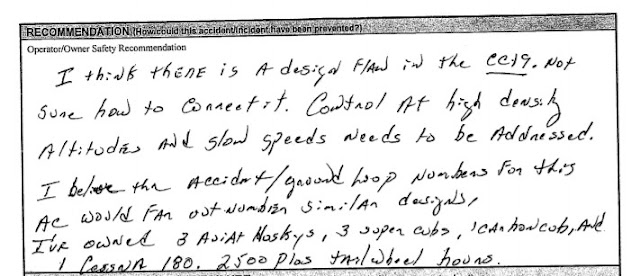 RECOMMENDATION (How could this accident/incident have been prevented?)
Operator/Owner Safety Recommendation
I think there is a design flaw in the CC19. Not
sure how to connect it. Control at high density
altitudes and slow speeds needs to be addressed.
I believe the accident/ground loop numbers for this
AC would far out number similar designs,
I've owned 3 Aviat Huskys, 3 super cubs, 1 carbon cub, and
1 Cessna 180. 2500 plus tailwheel hours.